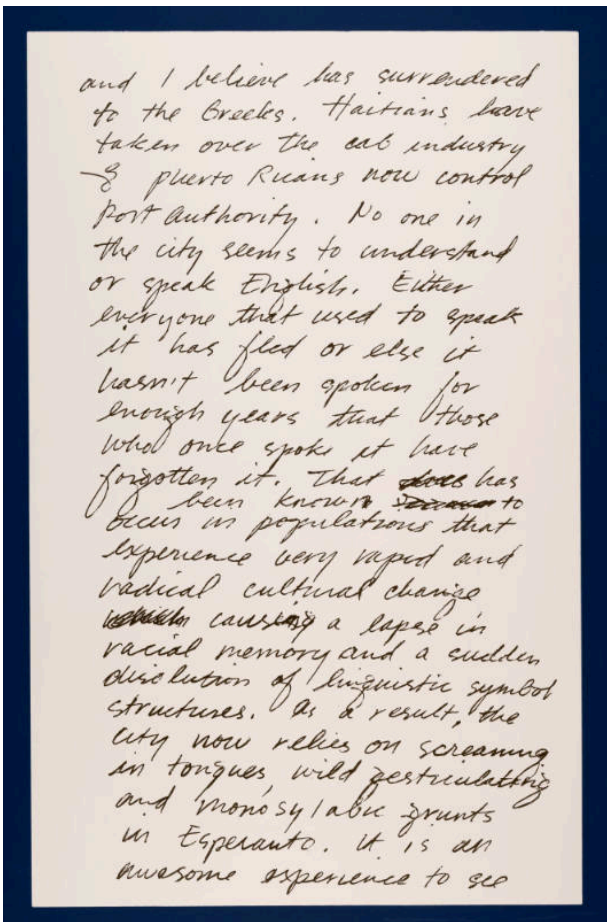 and I believe has surrendered
to the Greeks. Haitians have
taken over the cab industry
& puerto Ricans now control
Port Authority. No one in
the city seems to understand
or speak English. Either
everyone that used to speak
it has fled or else it
hasn't been spoken for
enough years that those
who once spoke it have
forgotten it. That does has
been known to
occur in populations that
experience very rapid and
radical cultural change
which causing a lapse in
racial memory and a sudden
disolution of linguistic symbol
structures. As a result, the
city now relies on screaming
in tongues, wild gesticulating
and monosylabic grunts
in Esperanto. It is an
awesome experience to see